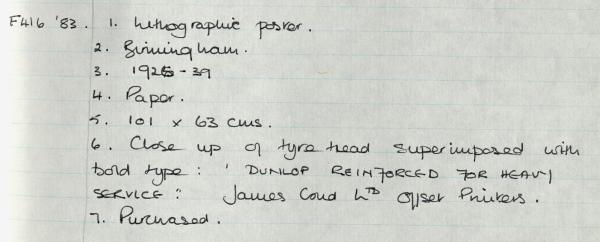 F416 '83. 1. Lithographic poster.
2. Birmingham.
3. 1925-39
4. Paper.
5. 101 x 63 cms.
6. Close up of tyre head superimposed with
bold type: 'DUNLOP REINFORCED FOR HEAVY
SERVICE'. James Cond Ltd Offset Printers.
7. Purchased.